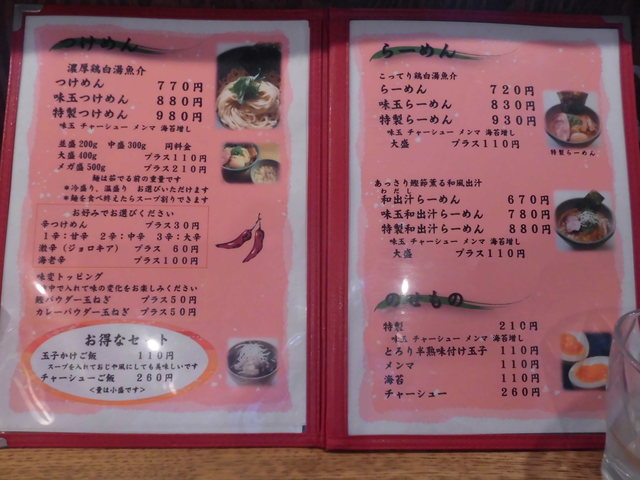 つけめん
濃厚鶏白湯魚介
つけめん 770円
味玉つけめん 880円
特製つけめん 980円
味玉 チャーシュー メンマ 海苔増し
並盛200g 中盛300g 同料金
大盛400g プラス110円
メガ盛500g プラス210円
麺は茹でる前の重量です
*冷盛り、温盛り お選びいただけます
*麺を食べ終えたらスープ割りできます
お好みでお選びください
辛つけめん プラス30円
1辛:甘辛 2辛:中辛 3辛:大辛
激辛(ジョロキア) プラス 60円
海老辛 プラス100円
味変トッピング
途中で入れて味の変化をお楽しみください
鰹パウダー玉ねぎ プラス50円
カレーパウダー玉ねぎ プラス50円
お得なセット
玉子かけご飯 110円
スープを入れておじや風にしても美味しいです
チャーシューご飯 260円
<量は小盛です>
らーめん
こってり鶏白湯魚介
らーめん 720円
味玉らーめん 830円
特製らーめん 930円
味玉 チャーシュー メンマ 海苔増し
大盛 プラス110円
特製らーめん
あっさり鰹節薫る和風出汁
わだし
和出汁らーめん 670円
味玉和出汁らーめん 780円
特製和出汁らーめん 880円
味玉 チャーシュー メンマ 海苔増し
大盛 プラス110円
のせもの
特製 210円
味玉 チャーシュー メンマ 海苔増し
とろり半熟味付け玉子 110円
メンマ 110円
海苔 110円
チャーシュー 260円